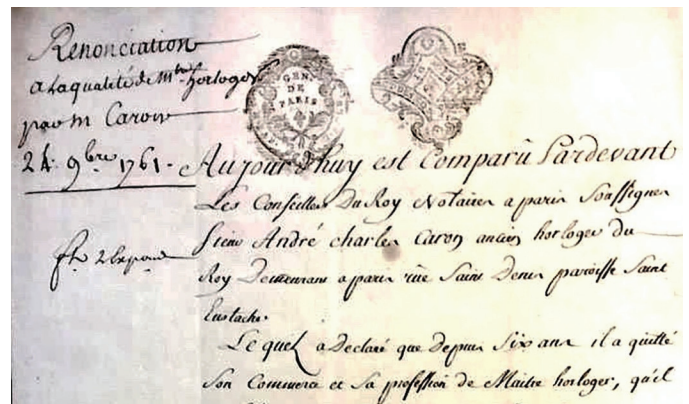 Renonciation
a la qualité de Mtre horloger
par M Caron
24. 9bre 1761.
GEN.
DE
PARIS
Aujourd'huy est Comparû Pardevant
Les Conseillers Du Roy Notaires a paris Soussignés
Sieur André charles Caron ancien horloger du
Roy Demeurant a paris rüe Saint Denis paroisse Saint
Eustache.
Lequel a Declaré que depuis Six ans il a quitté
Son Commerce et Sa profession de Maitre horloger, qu'il